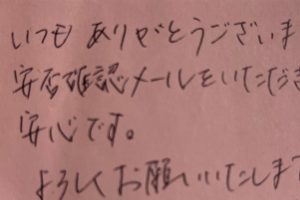 いつもありがとうございま
安否確認メールをいただき
安心です。
よろしくお願いいたしま